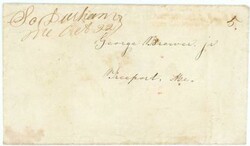 So Durham
Me Oct 22
5.
George Brewer Jr
Freeport, Me.